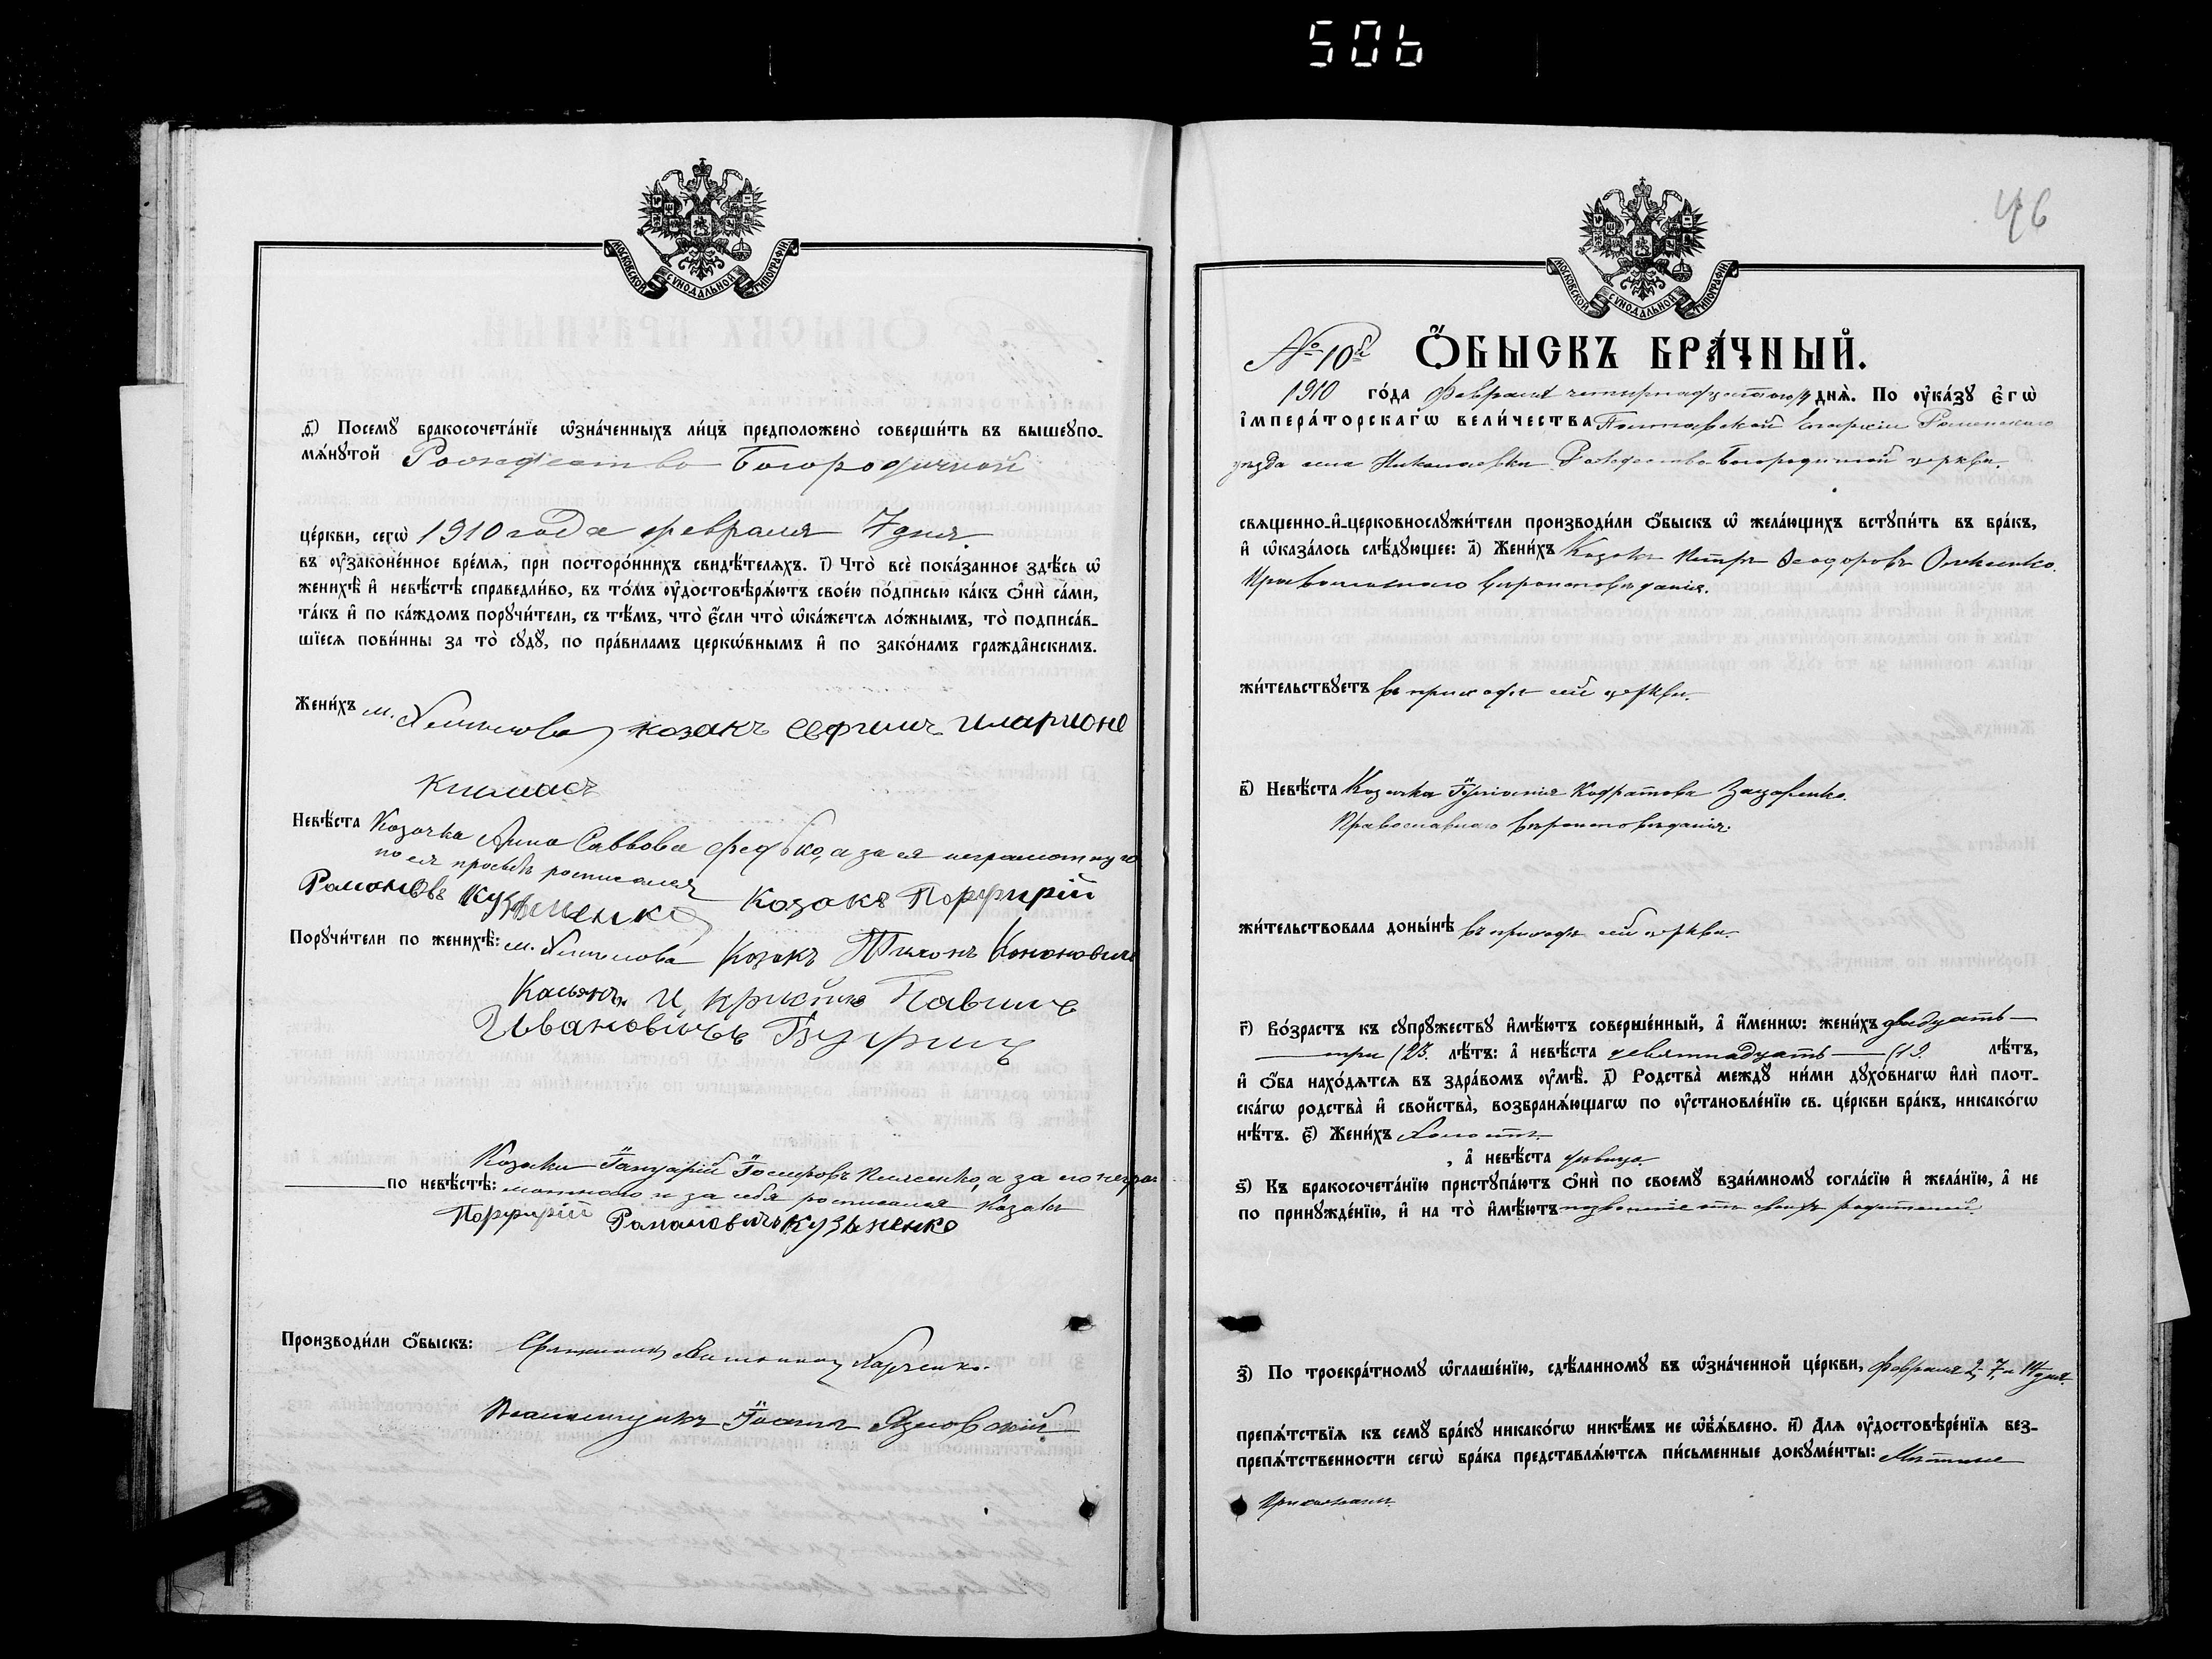 506
МОСКОВСКОЙ СѴНОДАЛЬНОЙ ТИПОГРАФІИ
д҃) Посемꙋ бракосочета́нїе ѡ҆зна́ченныхъ ли́цъ предположено̀ соверши́ть въ вышеꙋпо-
мѧ́нꙋтой Рождество Богородичной
це́ркви, сегѡ̀ 1910 года февраля 7 дня.
въ ᲂу҆законе́нное вре́мѧ, при посторо́ннихъ свидѣ́телѧхъ. і҃) Что̀ всѐ пока́занное здѣ́сь ѡ҆
женихѣ̀ и҆ невѣ́стѣ справедли́во, въ то́мъ ᲂу҆достовѣрѧ́ютъ свое́ю по́дписью ка́къ ѻ҆нѝ са́ми,
та́къ и҆ по ка́ждомъ порꙋчи́тели, съ тѣ́мъ, что̀ є҆́сли что̀ ѡ҆ка́жетсѧ ло́жнымъ, то̀ подписа́в-
шїесѧ пови́нны за то̀ сꙋдꙋ̀, по пра́виламъ церкѡ́внымъ и҆ по зако́намъ гражда̑нскимъ.
Жени́хъ м. козакъ Ефимъ Иларионо
Невѣ́ста Козачка Анна Саввова а за ея неграмотную
по ея просьбѣ росписался
Романовъ Кузьменко Козакъ Порфирій
Порꙋчи́тели по женихѣ̀: м. Козакъ Тихонъ Кононовичъ
Касьянъ и
Ивановичъ
Козаки а за его негра-
по невѣ́стѣ: мотнаго и за себя росписался Козакъ
Порфирій Романовичъ Кузьменко
Производи́ли ѻ҆́быскъ: Священникъ
Псаломщикъ Іоаннъ
46
МОСКОВСКОЙ СѴНОДАЛЬНОЙ ТИПОГРАФІИ
№ 10й Ѻ҆́БЫСКЪ БРА́ЧНЫЙ.
1910 го́да Февраля четырнадцатого 14 днѧ̀. По ᲂу҆ка́зꙋ Є҆гѡ̀
І҆мпера́торскагѡ вели́чества Полтавской Епархіи Роменскаго
уѣзда села Николаевки Рождество Богородичной церкви.
свѧщенно-и҆-церковнослꙋжи́тели производи́ли ѻ҆́быскъ ѡ҆ жела́ющихъ встꙋпи́ть въ бра́къ,
и҆ ѡ҆каза́лось слѣ́дꙋющее: а҃) Жени́хъ Козакъ Петръ Ѳеодоровъ
Православнаго вѣроисповѣданія.
жи́тельствꙋетъ въ приходѣ сей церкви.
в҃) Невѣ́ста Козачка Кодратова Захаренко.
Православнаго вѣроисповѣданія.
жи́тельствовала доны́нѣ въ приходѣ сей церкви.
г҃) Во́зрастъ къ сꙋпрꙋ́жествꙋ и҆мѣ́ютъ соверше́нный, а҆ и҆́меннѡ: жени́хъ двадцать
три (23. лѣ́тъ: а҆ невѣ́ста девятнадцать (19. лѣ́тъ,
и҆ ѻ҆́ба нахо́дѧтсѧ въ здра́вомъ ᲂу҆мѣ̀. д҃) Родства̀ междꙋ̀ ни́ми дꙋхо́внагѡ и҆лѝ плот-
ска́гѡ родства̀ и҆ сво́йства̀, возбранѧ́ющагѡ по ᲂу҆становле́нїю св. це́ркви бра́къ, никако́гѡ
нѣ́тъ. є҃) Жени́хъ холостъ
, а҆ невѣ́ста дѣвица.
ѕ҃) Къ бракосочета́нїю пристꙋпа́ютъ ѻ҆нѝ по своемꙋ̀ взаи́мномꙋ согла́сїю и҆ жела́нїю, а҆ не
по принꙋжде́нїю, и҆ на то̀ и҆мѣ́ютъ позволеніе отъ своихъ родителей.
з҃) По троекра́тномꙋ ѡ҆глаше́нїю, сдѣ́ланномꙋ въ ѡ҆зна́ченной це́ркви, февраля 2, 7, и 14 дня.
препѧ́тствїѧ къ семꙋ̀ бра́кꙋ никако́гѡ никѣ́мъ не ѡ҆б̾ѧ́влено. и҃) Длѧ ᲂу҆достовѣре́нїѧ без-
препѧ́тственности сегѡ̀ бра́ка представлѧ́ютсѧ пи́сьменные докꙋме́нты: Мѣстные
прихожани.